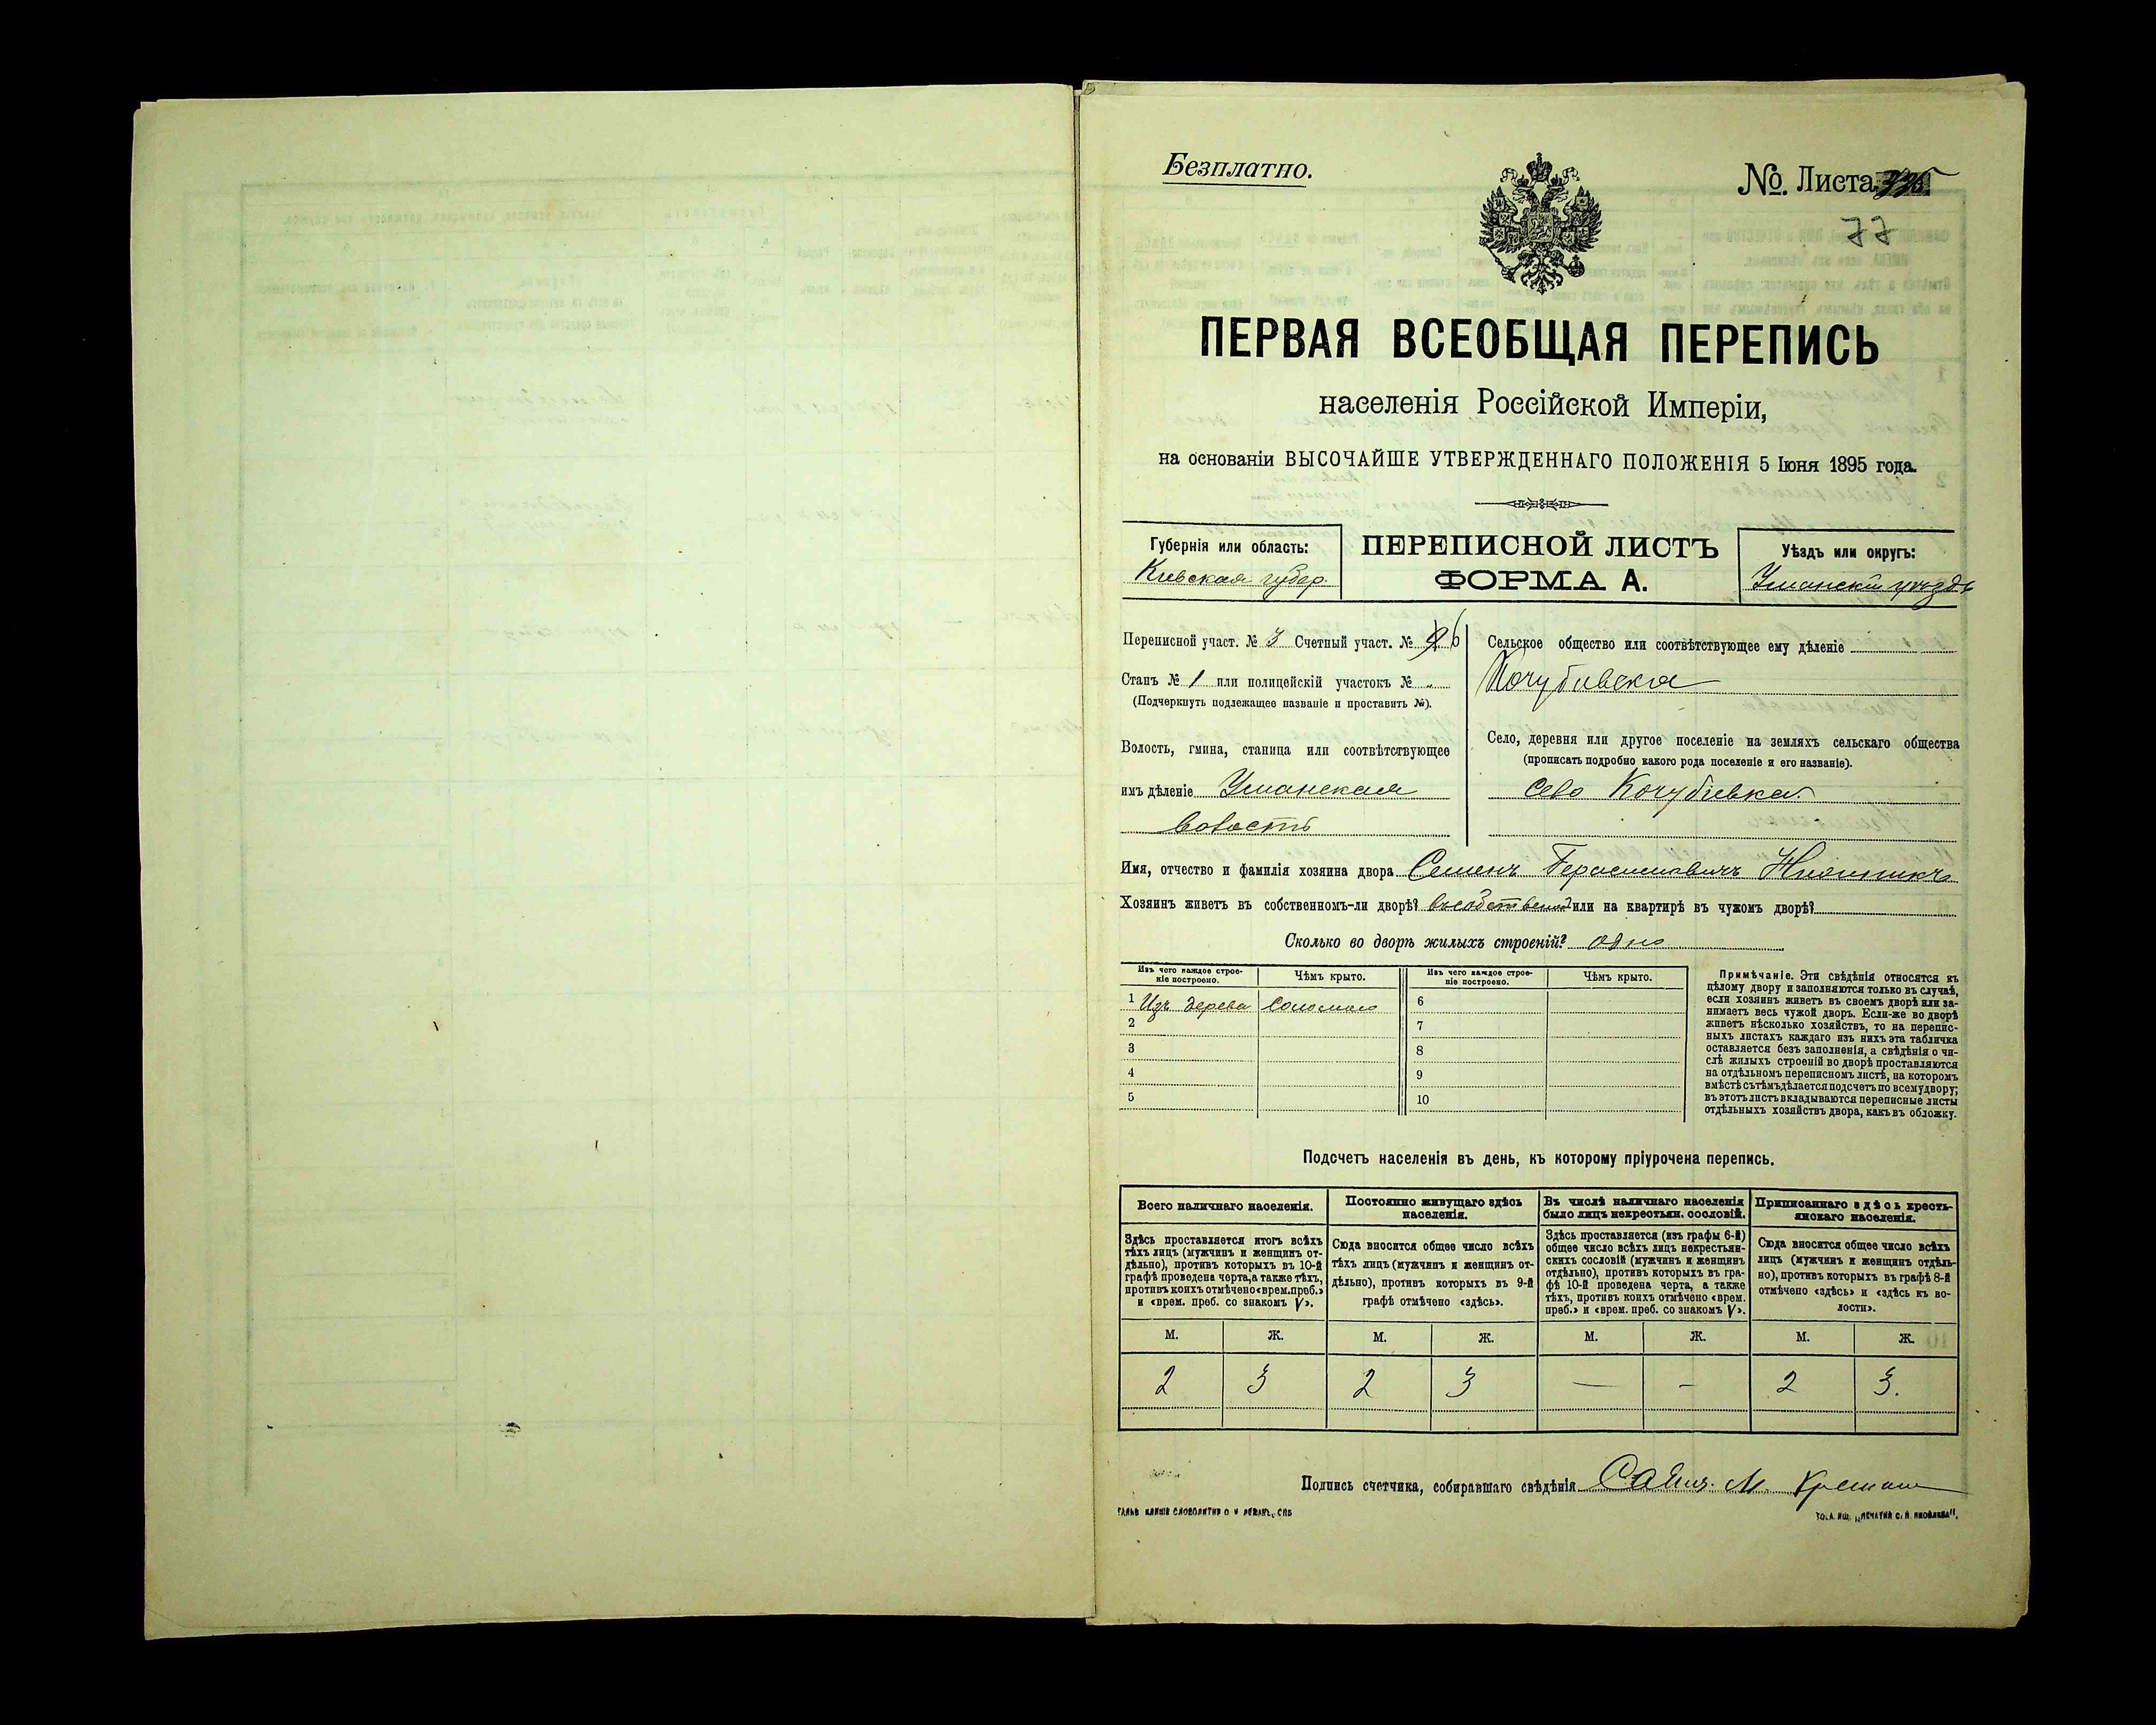 Безплатно.
№ Листа
77
ПЕРВАЯ ВСЕОБЩАЯ ПЕРЕПИСЬ
населенія Россійской Имперіи,
на основаніи ВЫСОЧАЙШЕ УТВЕРЖДЕННАГО ПОЛОЖЕНІЯ 5 Іюня 1895 года.
Губернія или область:
Кіевская губер.
ПЕРЕПИСНОЙ ЛИСТЪ
ФОРМА А.
Уѣздъ или округъ:
Уманскій уѣздъ
Переписной участ. № 3 Счетный участ. № 6
Станъ № 1 или полицейскій участокъ № „
(Подчеркнуть подлежащее названіе и проставить №).
Волость, гмина, станица или соотвѣтствующее
имъ дѣленіе Уманская
волость
Сельское общество или соотвѣтствующее ему дѣленіе
Кочубивска
Село, деревня или другое поселеніе на земляхъ сельскаго общества
(прописать подробно какого рода поселеніе и его названіе).
Село Кочубіевка
Имя, отчество и фамилія хозяина двора Семенъ Герасимовичъ
Хозяинъ живетъ въ собственномъ-ли дворѣ? въ собственно или на квартирѣ въ чужомъ дворѣ?
Сколько во дворѣ жилыхъ строеній? одно
Изъ чего каждое строе-
ніе построено.
Чѣмъ крыто.
Изъ чего каждое строе-
ніе построено.
Чѣмъ крыто.
1 Изъ дерева Соломою 6
2 7
3 8
4 9
5 10
Примѣчаніе. Эти свѣдѣнія относятся къ
цѣлому двору и заполняются только въ случаѣ,
если хозяинъ живетъ въ своемъ дворѣ или за-
нимаетъ весь чужой дворъ. Если-же во дворѣ
живетъ нѣсколько хозяйствъ, то на перепис-
ныхъ листахъ каждаго изъ нихъ эта табличка
оставляется безъ заполненія, а свѣдѣнія о чи-
слѣ жилыхъ строеній во дворѣ проставляются
на отдѣльномъ переписномъ листѣ, на которомъ
вмѣстѣ съ тѣмъ дѣлается подсчетъ по всему двору;
въ этотъ листъ вкладываются переписные листы
отдѣльныхъ хозяйствъ двора, какъ въ обложку.
Подсчетъ населенія въ день, къ которому пріурочена перепись.
Всего наличнаго населенія.
Здѣсь проставляется итогъ всѣхъ
тѣхъ лицъ (мужчинъ и женщинъ от-
дѣльно), противъ которыхъ въ 10-й
графѣ проведена черта, а также тѣхъ,
противъ коихъ отмѣчено «врем. преб.»
и «врем. преб. со знакомъ V».
Постоянно живущаго здѣсь
населенія.
Сюда вносится общее число всѣхъ
тѣхъ лицъ (мужчинъ и женщинъ от-
дѣльно), противъ которыхъ въ 9-й
графѣ отмѣчено «здѣсь».
Въ числѣ наличнаго населенія
было лицъ некрестьян. сословій.
Здѣсь проставляется (изъ графы 6-й)
общее число всѣхъ лицъ некрестьян-
скихъ сословій (мужчинъ и женщинъ
отдѣльно), противъ которыхъ въ гра-
фѣ 10-й проведена черта, а также
тѣхъ, противъ коихъ отмѣчено «врем.
преб.» и «врем. преб. со знакомъ V».
Приписаннаго здѣсь кресть-
янскаго населенія.
Сюда вносится общее число всѣхъ
лицъ (мужчинъ и женщинъ отдѣль-
но), противъ которыхъ въ графѣ 8-й
отмѣчено «здѣсь» и «здѣсь къ во-
лости».
М. Ж. М. Ж. М. Ж. М. Ж.
2 3 2 3 — - 2 3.
Подпись счетчика, собиравшаго свѣдѣнія